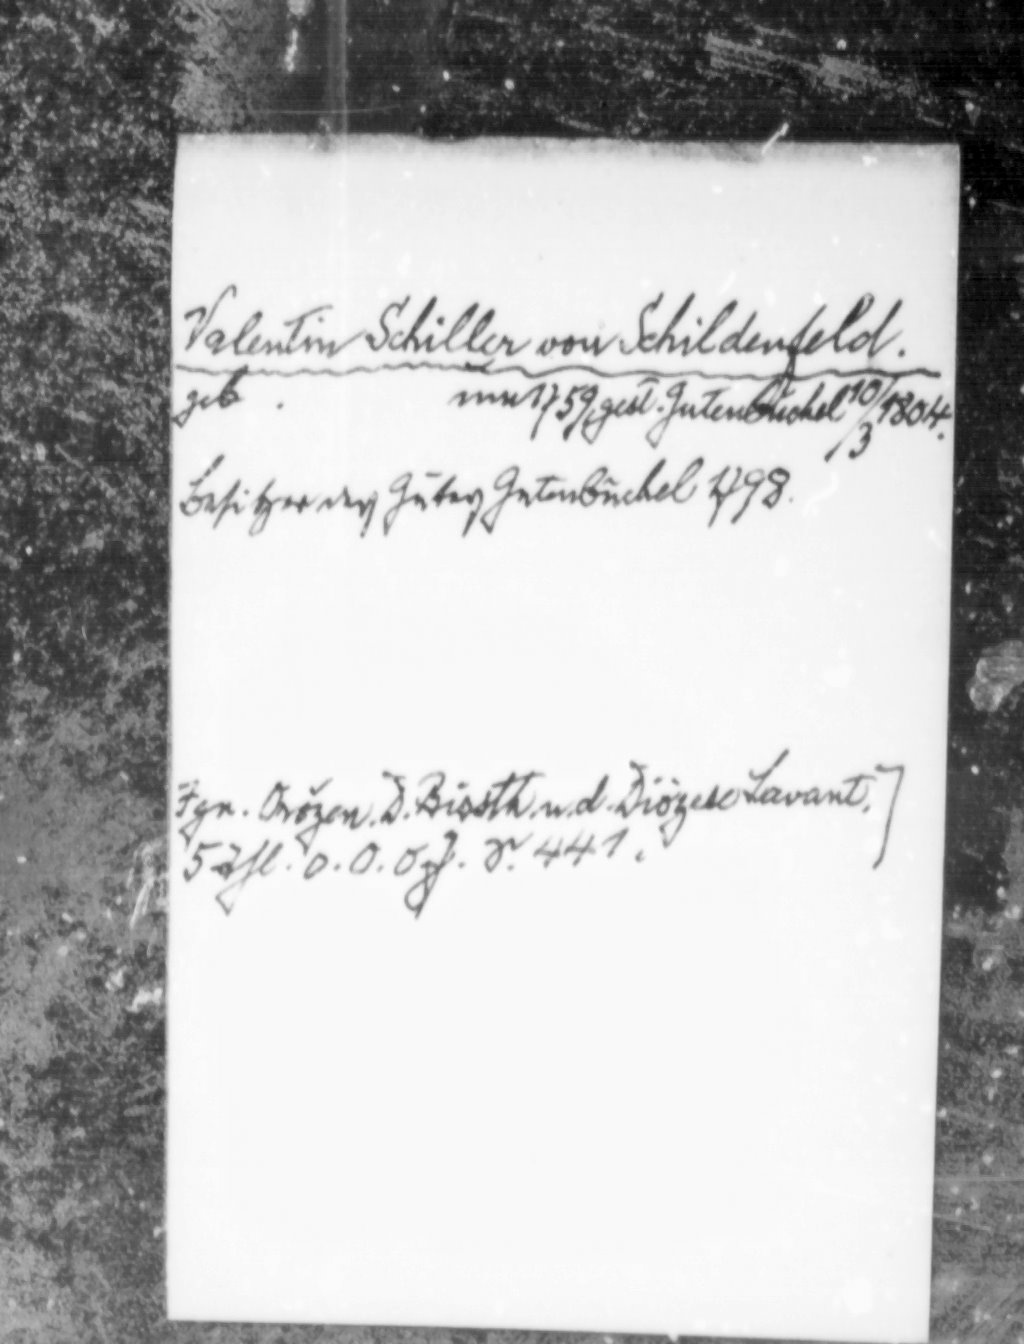 Valentin Schiller von Schildenfeld.
geb . um 1759, gest. Gutenbüchel 10/3 1804.
Besitzer des Gutes Gutenbüchel 1798.
Ign. Orožen. D. Bissth. u. d. Diözese Lavant.
5 Thl. o. O. o. J. S. 441.